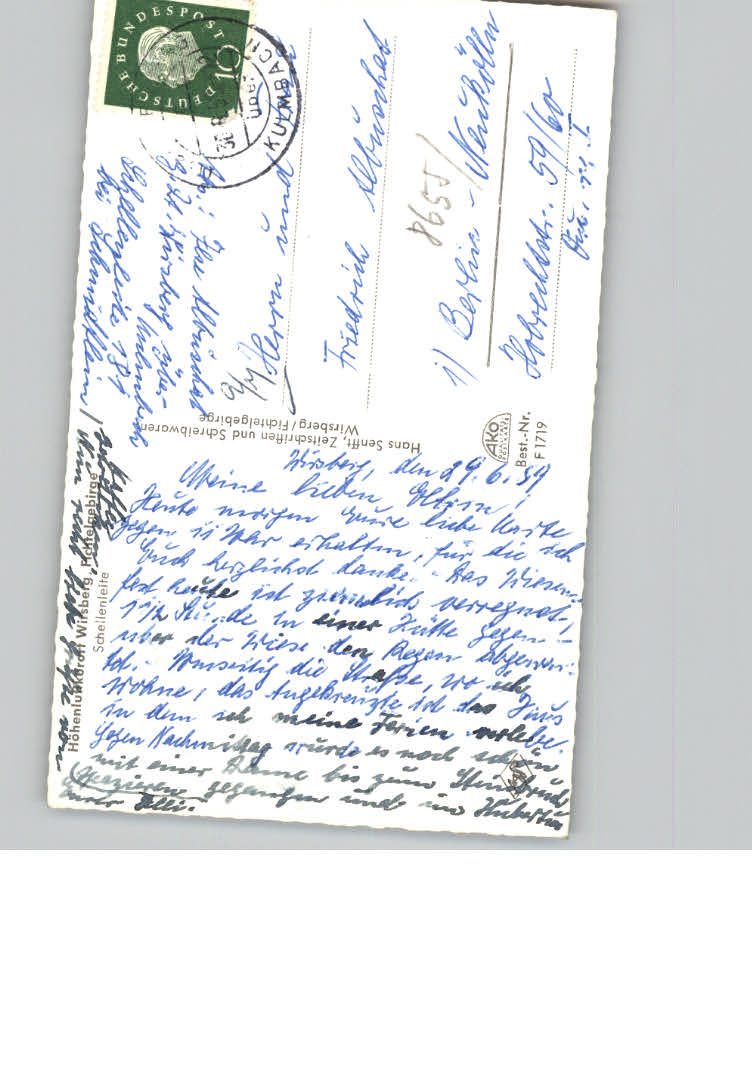 DEUTSCHE BUNDESPOST
10
KULMBACH
Herrn und
Friedrich
8655/
1) Berlin-Neukölln
Hobrechtstr. 59/60
Abs.: Ilse
z.Zt. Wirsberg über
Kulmbach
Schellenleite 181
bei
Hans Senfft, Zeitschriften und Schreibwaren
Wirsberg/Fichtelgebirge
AKO
Best.-Nr.
F 1719
Höhenluftkurort Wirsberg, Fichtelgebirge
Schellenleite
Wirsberg, den 29.6.59
Meine lieben Eltern!
Heute morgen Eure liebe Karte
gegen 11 Uhr erhalten, für die ich
Euch herzlichst danke. Das Wiesen-
fest heute ist ziemlich verregnet.
1½ Stunde in einer Hütte gegen-
über der Wiese den Regen
Umseitig die Straße, wo ich
wohne, das Angekreuzte ist das Haus
in dem ich meine Ferien verlebe.
Gegen Nachmittag wurde es noch schön
mit einer Dame bis zum Steinbruch
spazieren gegangen und im
Eure